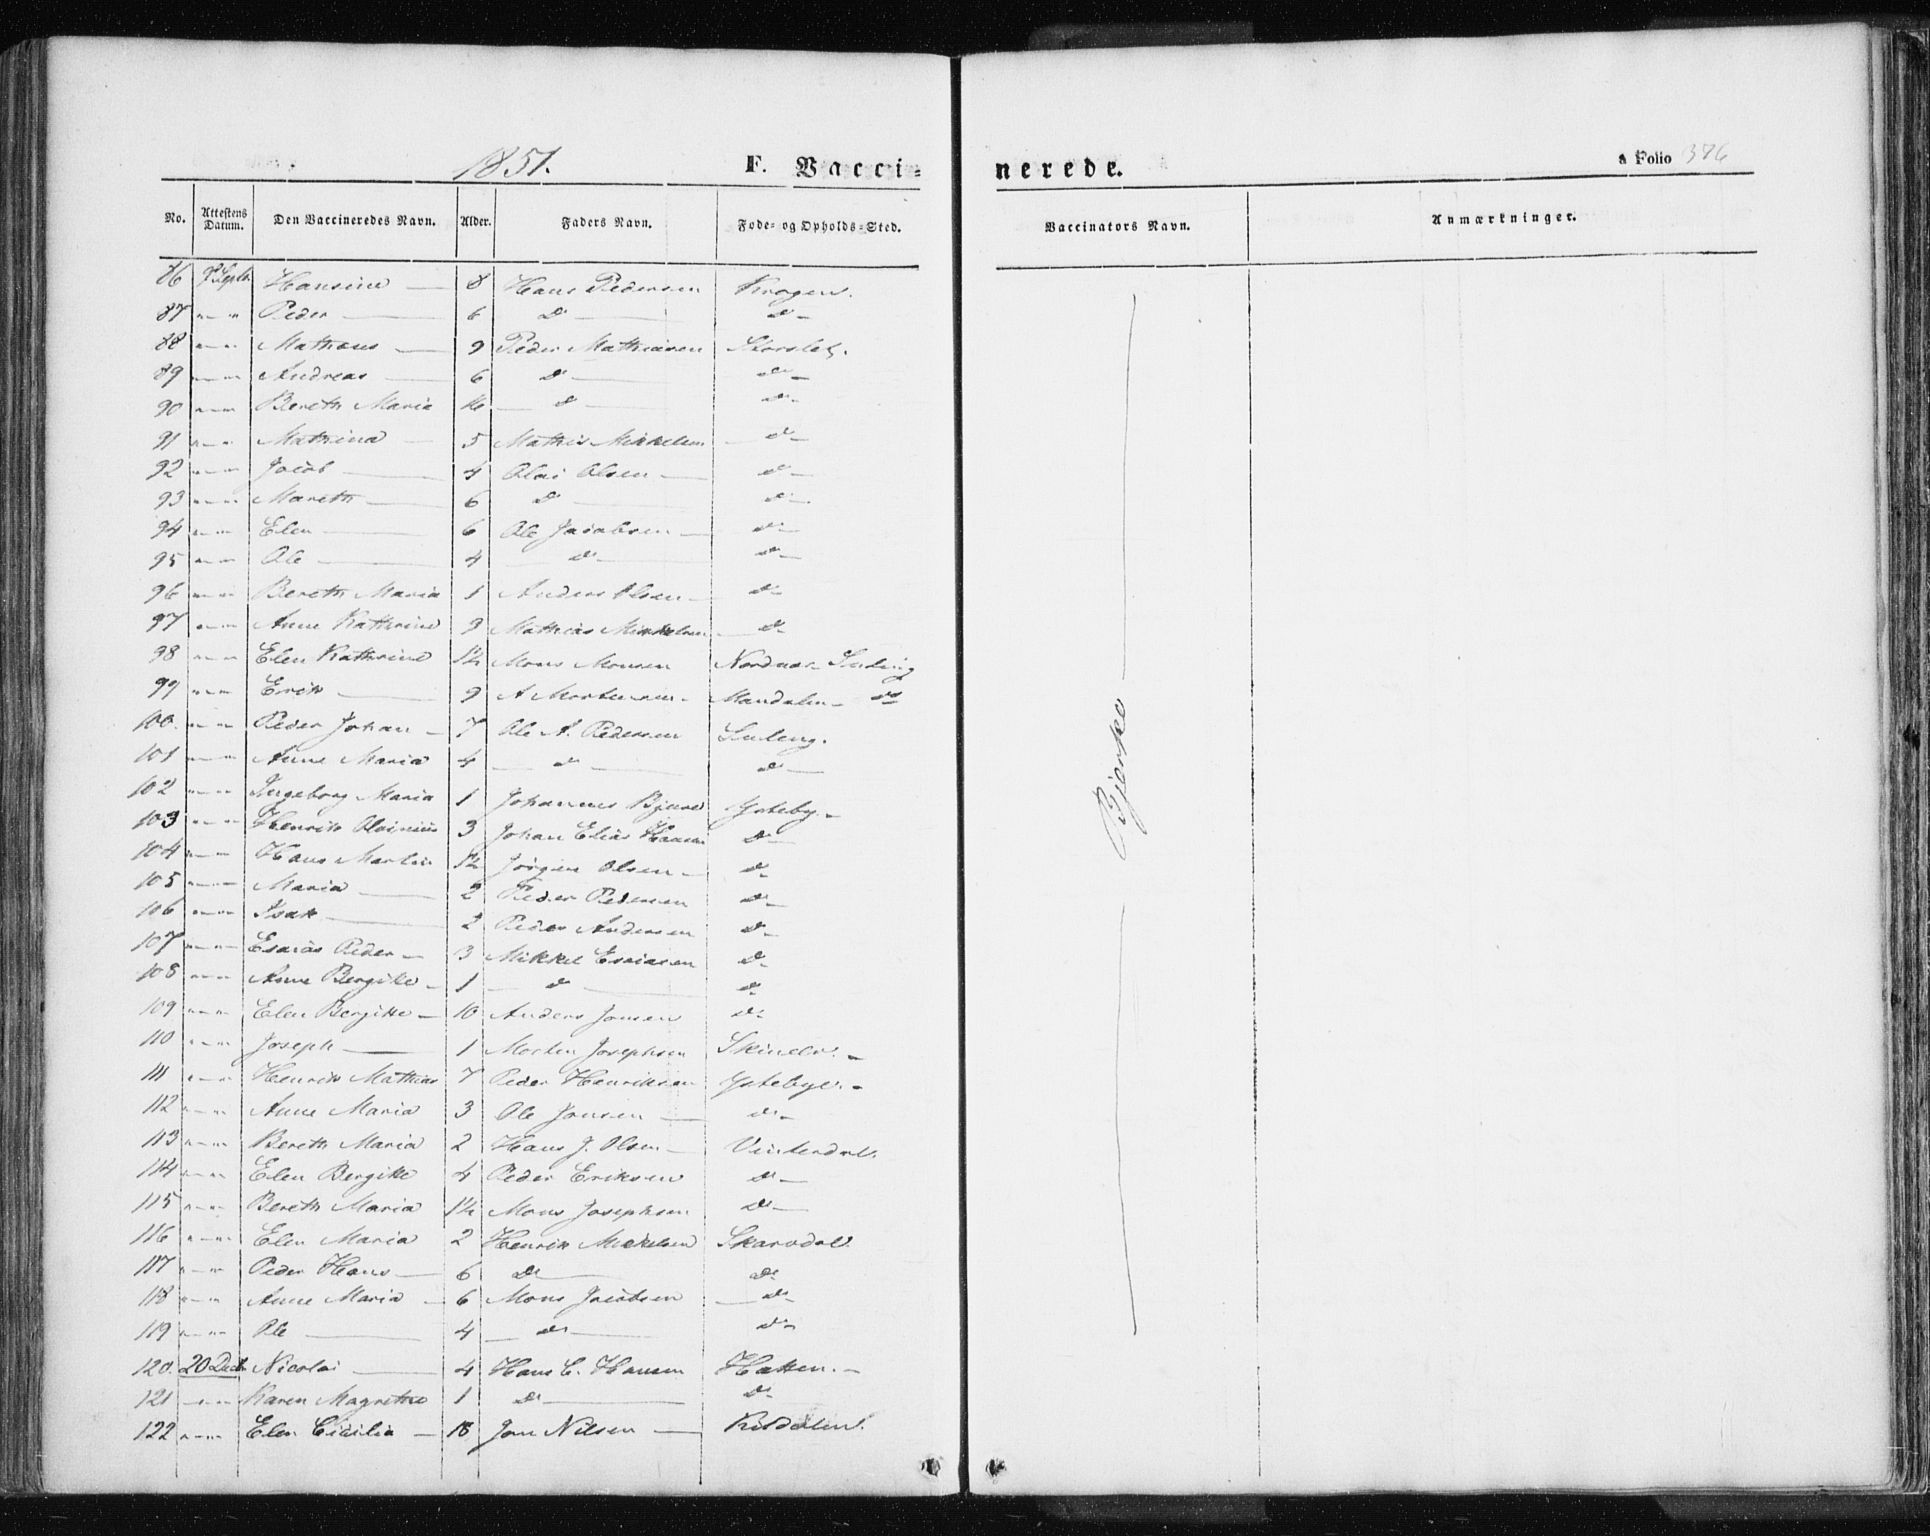 1851. F. Vacci- nerede. a Folio 376
No. Attestens Datum. Den Vaccineredes Navn. Alder. Faders Navn. Føde- og Opholds-Sted. Vaccinators Navn. Anmærkninger.
86 Septb. Hansine 8 Hans Pedersen Kragen.
87 " " Peder 6 D D
88 " " Matheus 9 Peder Mathiasen Storslet.
89 " " Andreas 6 D D
90 " " Bereth Maria D D
91 " " Mathina 5 Mathis Mikkelsen D
92 " " Jacob 4 Olai Olsen D
93 " " Mareth 6 D D
94 " " Elen 6 Ole Jacobsen D
95 " " Ole 4 D D
96 " " Bereth Maria 1 Anders Olsen D
97 " " Anne Kathrine 9 Mathias Mikkelsen D
98 " " Elen Kathrine Mons Monsen Nordnæs
99 " " Erik 9 A Mortensen Mandalen D
100. " " Peder Johan 7 Ole A. Pedersen
101 " " Anne Maria 4 D D
102 " " Ingeborg Maria 1 Johannes Ysteby.
103 " " Henrik Olainius 3 Johan Elias Hansen D
104 " " Hans Martin Jørgen Olsen D
105 " " Maria 2 Peder Pedersen D
106 " " Isak 2 Peder Andersen D
107 " " Esaias Peder 3 Mikkel Esaiasen D
108 " " Anne Bergitte 1 D D
109 " " Elen Bergitte 10 Anders Jonsen D
110 " " Joseph 1 Morten Josephsen Skinelv.
111 " " Henrik Mathias 7 Peder Henriksen Ysteby.
112 " " Anne Maria 3 Ole Jonsen D
113 " " Bereth Maria 2 Hans J. Olsen Vinterdal.
114 " " Elen Bergitte 4 Peder Eriksen D
115 " " Bereth Maria Mons Josephsen D
116 " " Elen Maria 2 Henrik Mikkelsen Skarvdal.
117 " " Peder Hans 6 D D
118 " " Anne Maria 6 Mons Jacobsen D
119 " " Ole 4 D D
120. 20 Decb. Nicolai 4 Hans C. Hansen Hatten.
121 " " Karen Magrethe 1 D D
122 " " Elen Cicilia 18 Jon Nilsen Kitdalen.
Bjerke